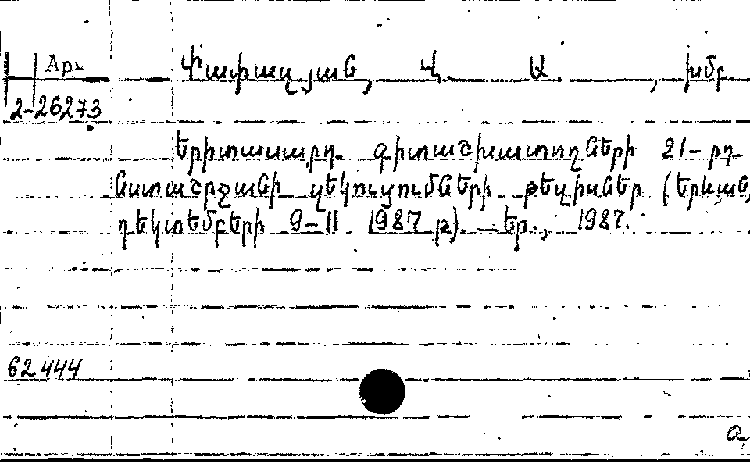 Արև Փափազյան, Վ. Ա. , խմբ
2-26273
Երիտասարդ գիտաշխատողների 21-րդ
նստաշրջանի զեկուցումների թեզիսներ (Երևան,
դեկտեմբերի 9-11 1987 թ). — Եր., 1987.
62444